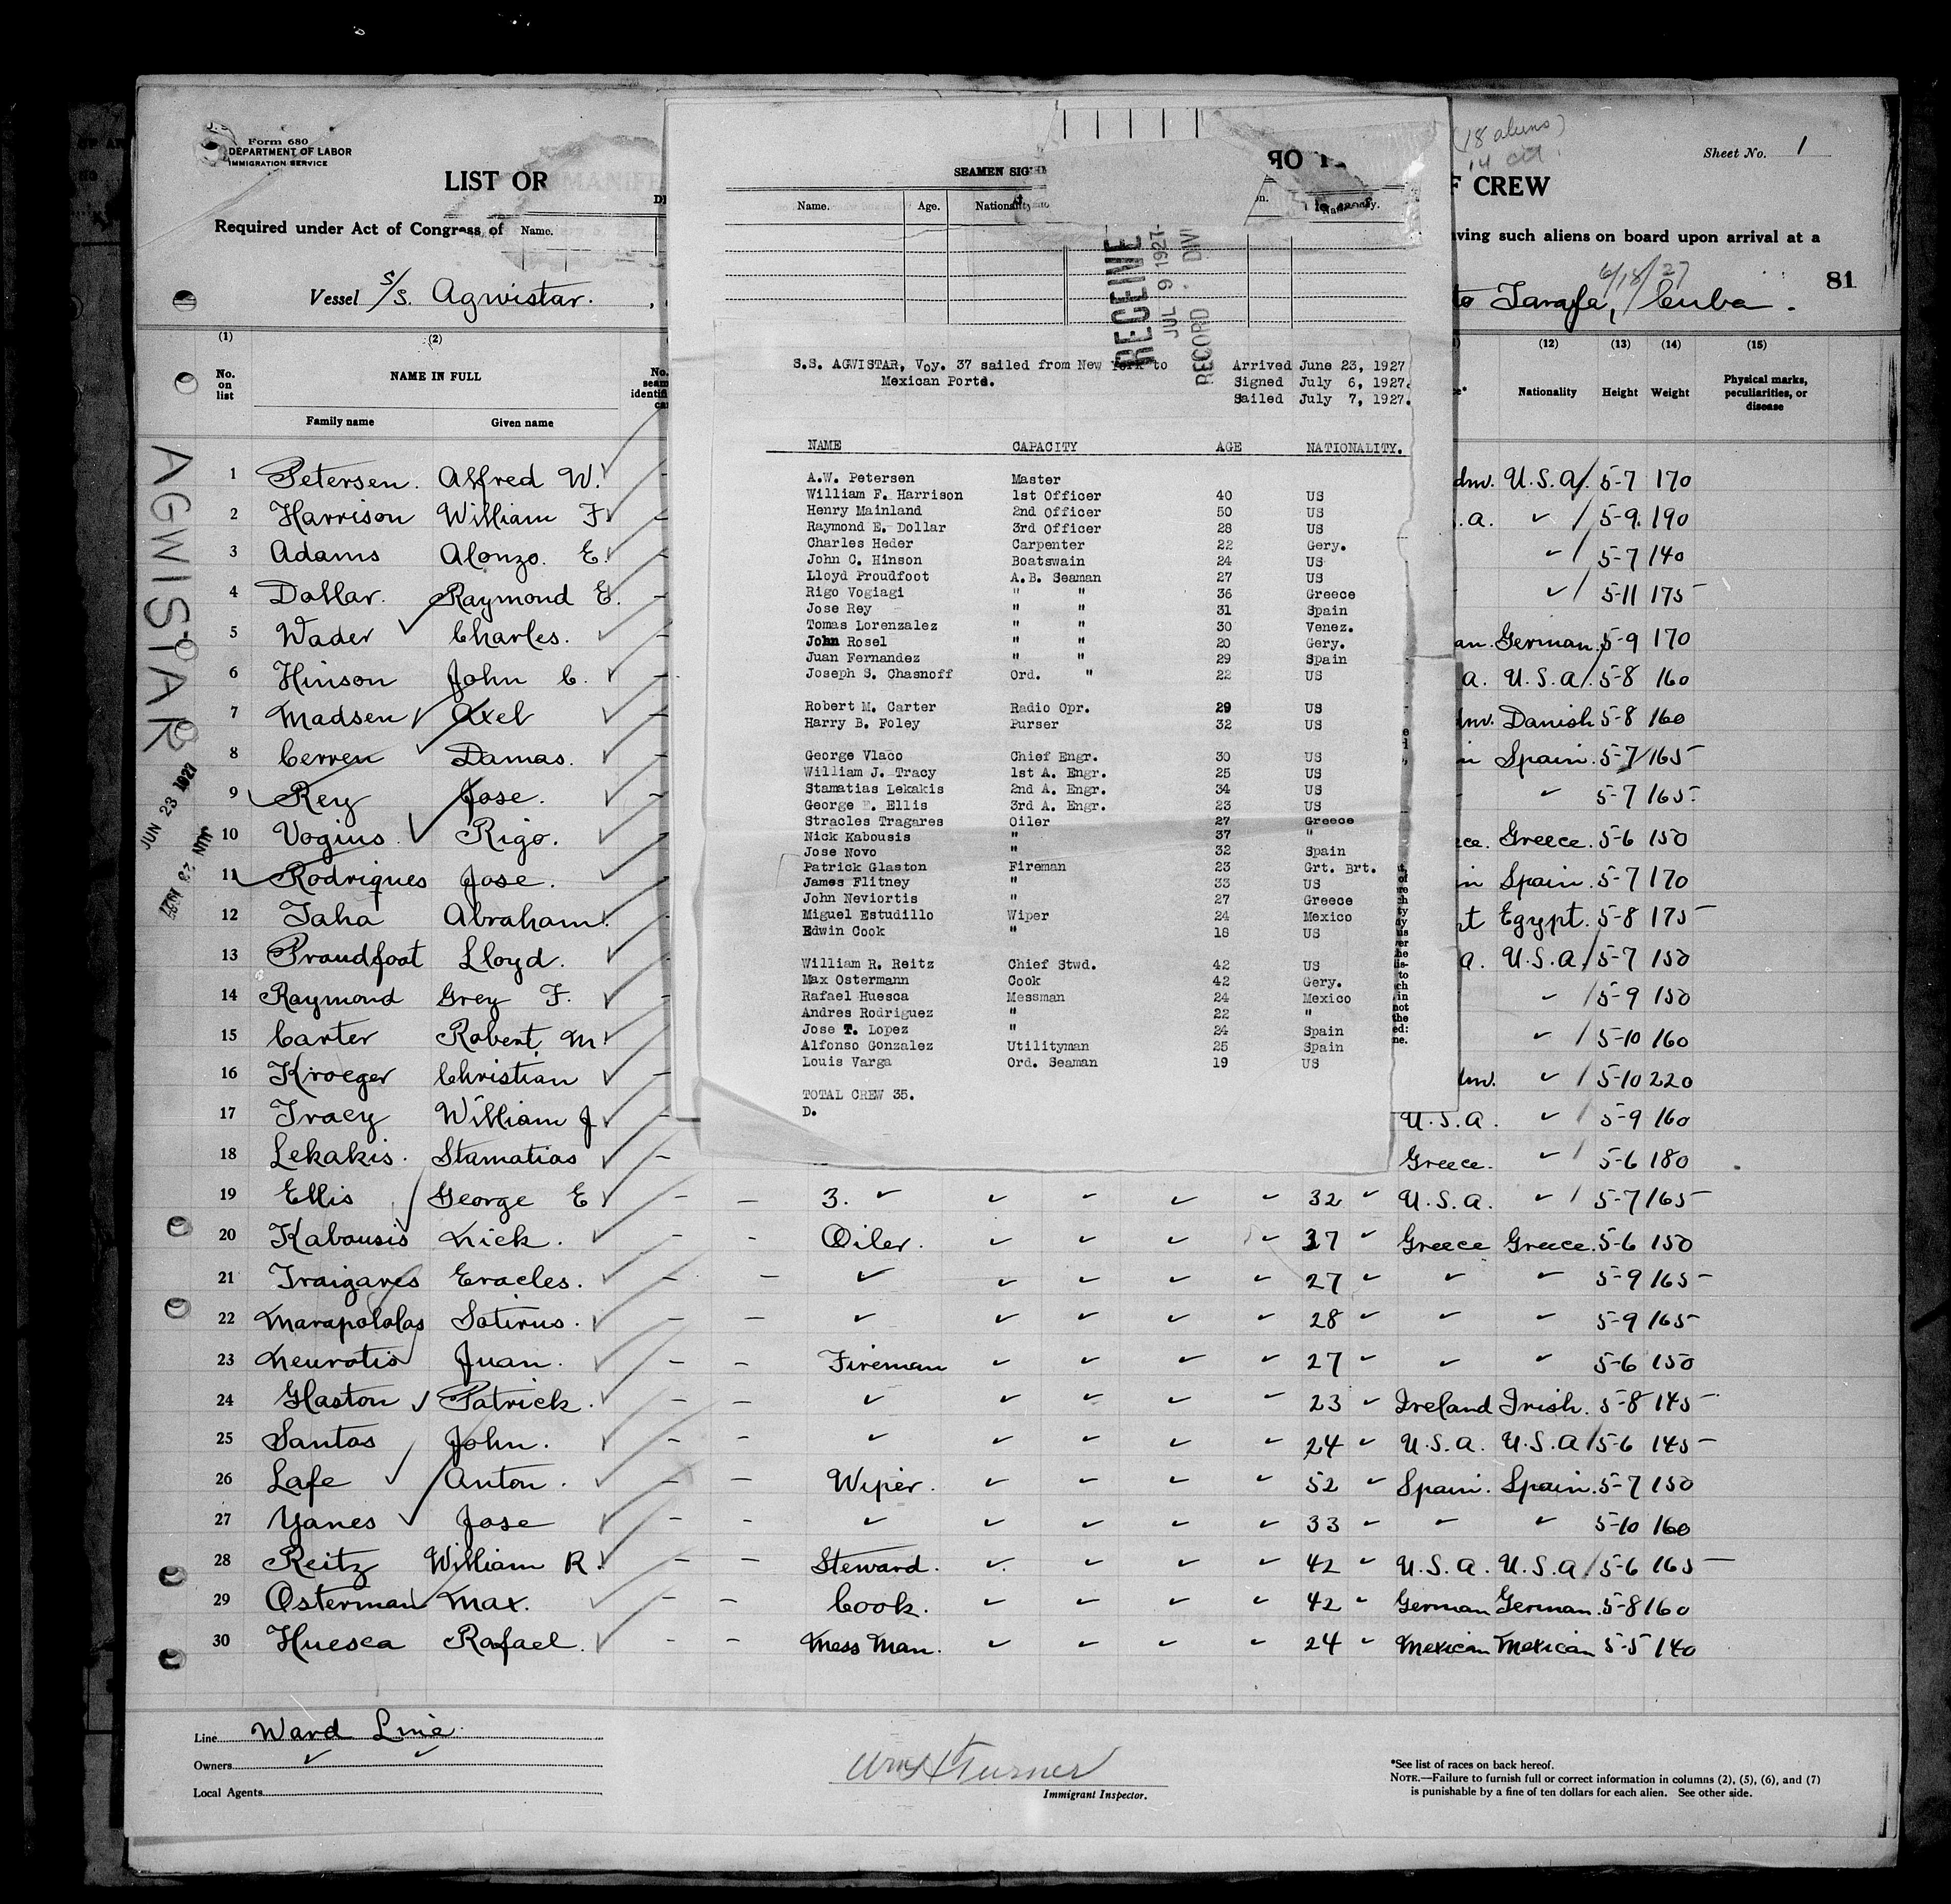 Form 680
DEPARTMENT OF LABOR
IMMIGRATION SERVICE
LIST OR MANIFE
F CREW
(18 aliens)
14 cit.
Sheet No. 1
Required under Act of Congress of
ving such aliens on board upon arrival at a
Vessel S/S. Agwistar.
6/18/27
to Tarafa, Cuba.
81
SEAMEN SIGN
Name.
Name. Age. Nationality
RECEIVE
JUL 9 1927
RECORD DIVI
(1) (2) (12) (13) (14) (15)
No. on list
NAME IN FULL
Family name Given name
Nationality Height Weight Physical marks, peculiarities, or disease
AGWISTAR
JUN 23 1927
JUN 23 1927
S.S. AGWISTAR, Voy. 37 sailed from New York to
Mexican Ports.
Arrived June 23, 1927
Signed July 6, 1927.
Sailed July 7, 1927.
NAME CAPACITY AGE NATIONALITY.
A.W. Petersen Master
William F. Harrison 1st Officer 40 US
Henry Mainland 2nd Officer 50 US
Raymond E. Dollar 3rd Officer 28 US
Charles Heder Carpenter 22 Gery.
John C. Hinson Boatswain 24 US
Lloyd Proudfoot A.B. Seaman 27 US
Rigo Vogiagi " " 36 Greece
Jose Rey " " 31 Spain
Tomas Lorenzalez " " 30 Venez.
John Rosel " " 20 Gery.
Juan Fernandez " " 29 Spain
Joseph S. Chasnoff Ord. " 22 US
Robert M. Carter Radio Opr. 29 US
Harry B. Foley Purser 32 US
George Vlaco Chief Engr. 30 US
William J. Tracy 1st A. Engr. 25 US
Stamatias Lekakis 2nd A. Engr. 34 US
George E. Ellis 3rd A. Engr. 23 US
Stracles Tragares Oiler 27 Greece
Nick Kabousis " 37 "
Jose Novo " 32 Spain
Patrick Glaston Fireman 23 Grt. Brt.
James Flitney " 33 US
John Neviortis " 27 Greece
Miguel Estudillo Wiper 24 Mexico
Edwin Cook " 18 US
William R. Reitz Chief Stwd. 42 US
Max Ostermann Cook 42 Gery.
Rafael Huesca Messman 24 Mexico
Andres Rodriguez " 22 "
Jose T. Lopez " 24 Spain
Alfonso Gonzalez Utilityman 25 Spain
Louis Varga Ord. Seaman 19 US
TOTAL CREW 35.
D.
1 Petersen. Alfred W. U.S.A. 5-7 170
2 Harrison William F 5-9. 190
3 Adams Alonzo. E. 5-7 140
4 Dollar. Raymond E. 5-11 175
5 Wader Charles. German. 5-9 170
6 Hinson John C. U.S.A. 5-8 160
7 Madsen Axel Danish 5-8 160
8 Cerren Damas. Spain. 5-7 165
9 Rey Jose. 5-7 165
10 Vogius Rigo. Greece. 5-6 150
11 Rodriques Jose. Spain. 5-7 170
12 Taha Abraham. Egypt. 5-8 175
13 Proudfoot Lloyd. U.S.A. 5-7 150
14 Raymond Grey F. 5-9 150
15 Carter Robert M 5-10 160
16 Kroeger Christian 5-10 220
17 Tracy William J U.S.A. 5-9 160
18 Lekakis. Stamatias Greece. 5-6 180
19 Ellis George E 3. 32 U.S.A. 5-7 165
20 Kabousis Nick. Oiler. 37 Greece Greece. 5-6 150
21 Traigares Eracles. 27 5-9 165
22 Marapololas Satirus. 28 5-9 165
23 Neurotis Juan. Fireman 27 5-6 150
24 Glaston Patrick. 23 Ireland Irish. 5-8 145
25 Santos John. 24 U.S.A. U.S.A 5-6 145
26 Lafe Anton. Wiper. 52 Spain. Spain. 5-7 150
27 Yanes Jose 33 5-10 160
28 Reitz William R. Steward. 42 U.S.A. U.S.A 5-6 165
29 Osterman Max. Cook. 42 German German. 5-8 160
30 Huesca Rafael. Mess Man. 24 Mexican Mexican 5-5 140
Line Ward Line.
Owners
Local Agents
Wm H Turner
Immigrant Inspector.
*See list of races on back hereof.
NOTE.—Failure to furnish full or correct information in columns (2), (5), (6), and (7)
is punishable by a fine of ten dollars for each alien. See other side.